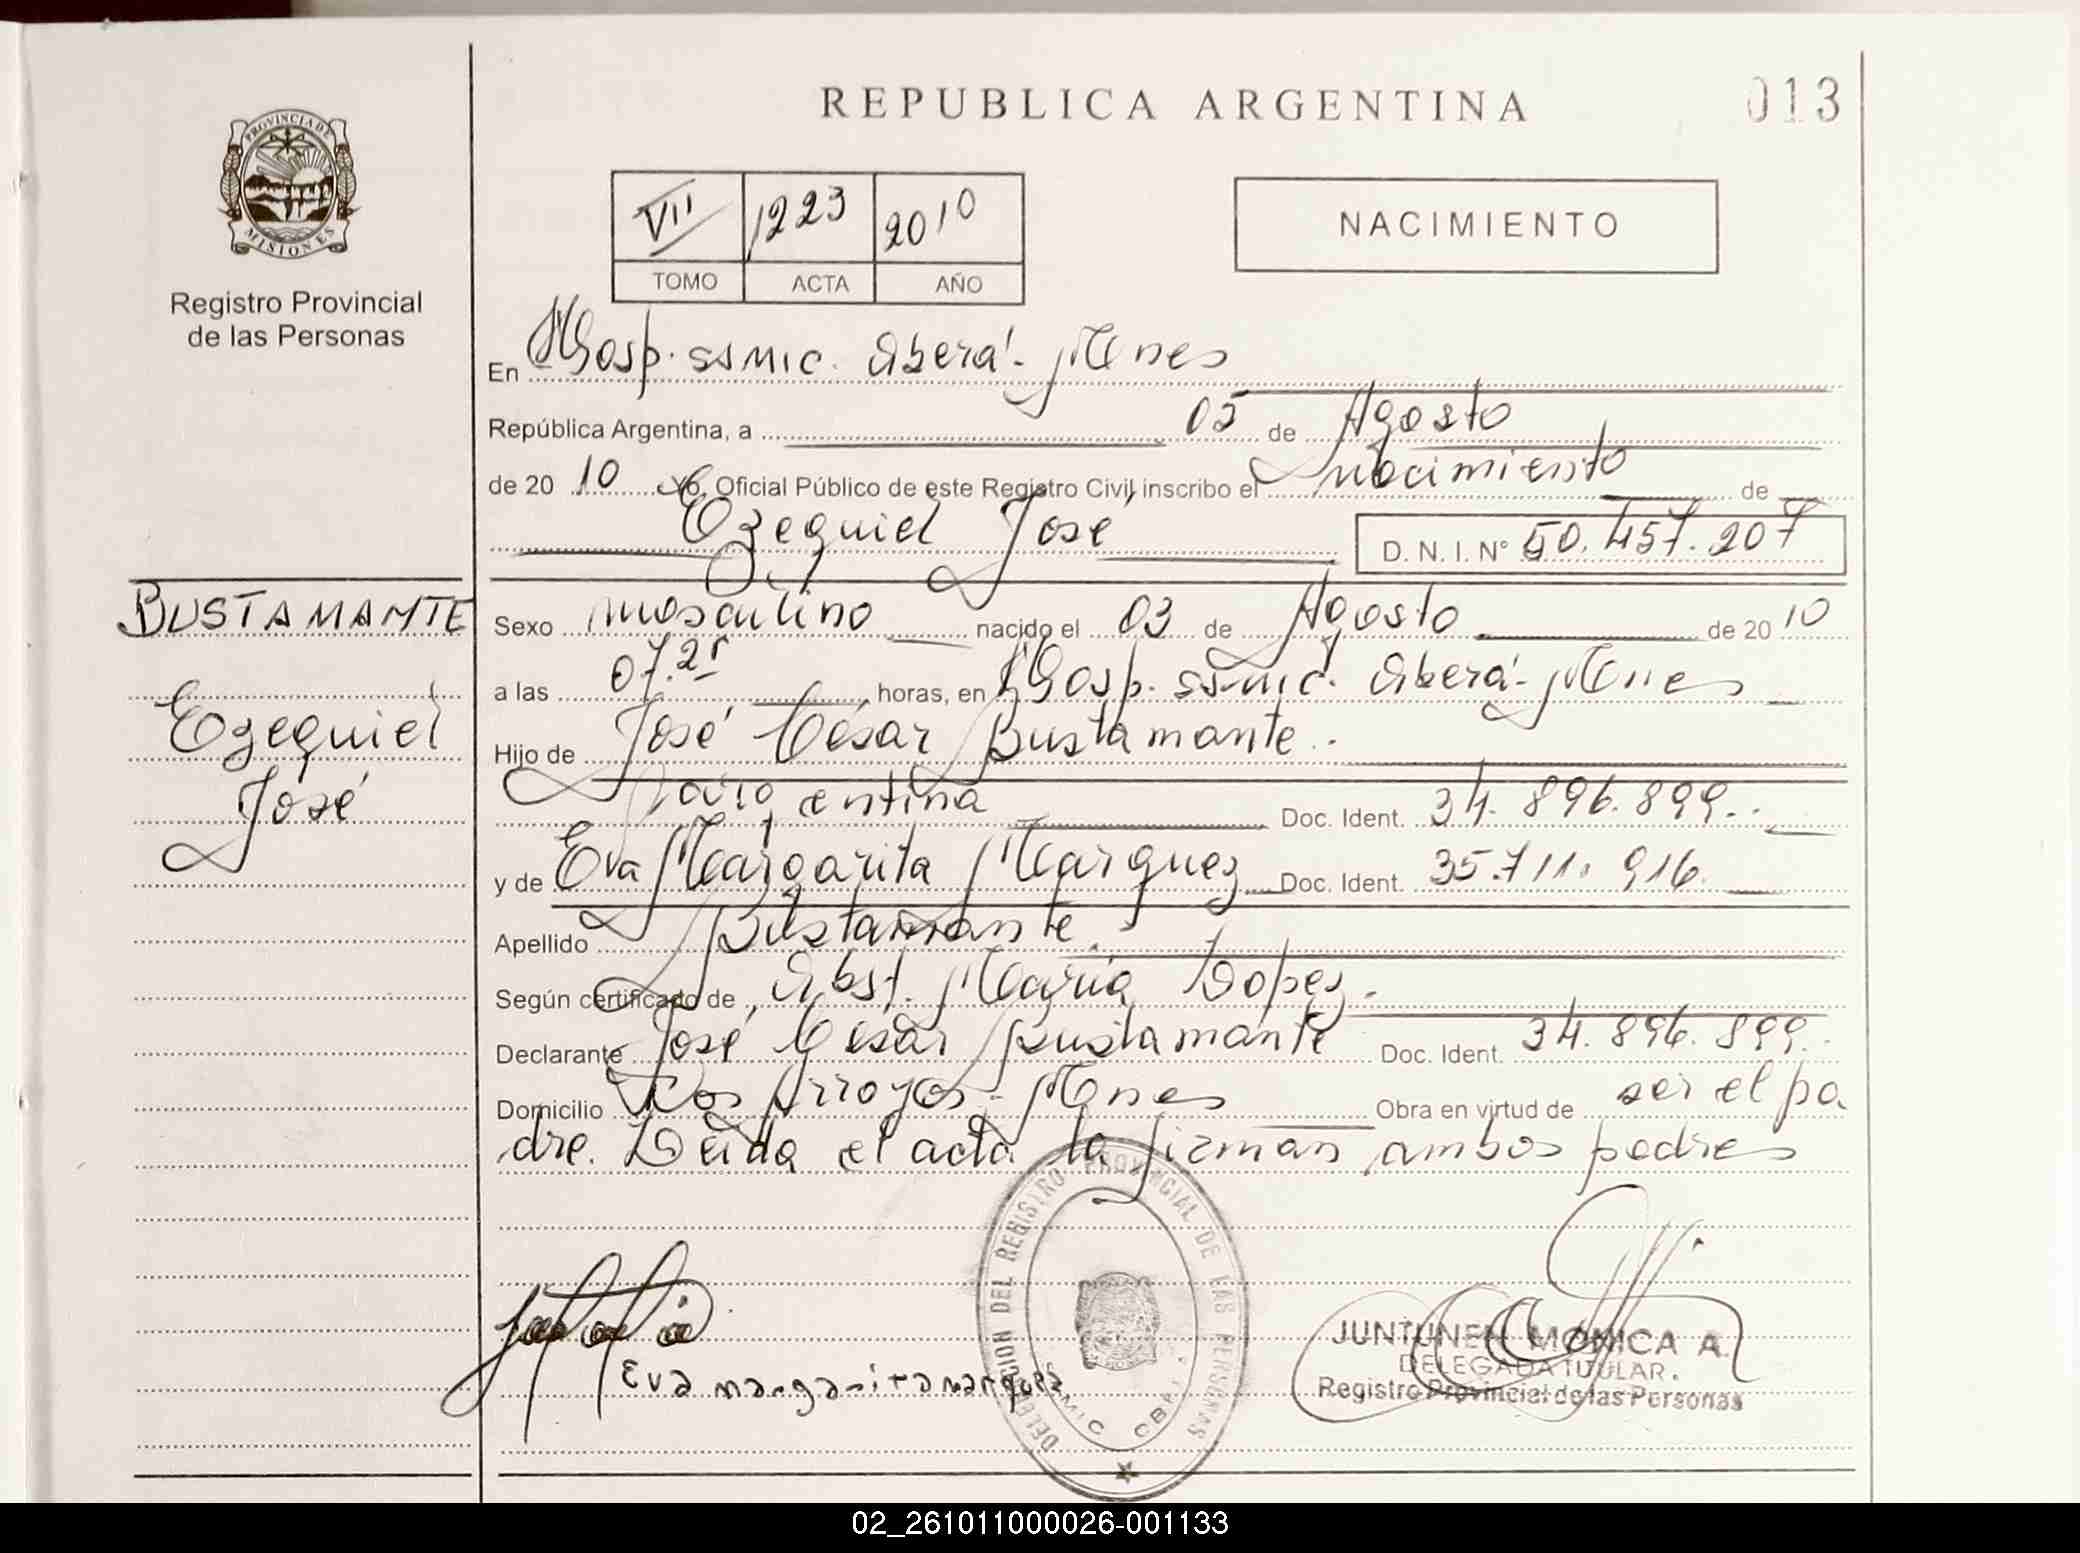 REPUBLICA ARGENTINA
013
PROVINCIA DE
MISIONES
Registro Provincial
de las Personas
VII 1223 2010
TOMO ACTA AÑO
NACIMIENTO
En Hosp. SSMIC. Oberá - Mnes
República Argentina, a 05 de Agosto
de 20 10 Yo, Oficial Público de este Registro Civil inscribo el nacimiento de
Ezequiel José D. N. I. N° 50.457.207
BUSTAMANTE
Ezequiel
José
Sexo masculino nacido el 03 de Agosto de 20 10
a las 07.25 horas, en Hosp. SSMIC. Oberá - Mnes
Hijo de José César Bustamante.
argentina Doc. Ident. 34.896.899.
y de Eva Margarita Marquez Doc. Ident. 35.711.916.
Apellido Bustamante.
Según certificado de Obst. María Lopez.
Declarante José César Bustamante Doc. Ident. 34.896.899.
Domicilio Dos Arroyos - Mnes Obra en virtud de ser el pa
dre. Leída el acta la firman ambos padres
Eva margarita marquez
DELEGACION DEL REGISTRO PROVINCIAL DE LAS PERSONAS
JUNTUNEN MONICA A.
DELEGADA TITULAR.
Registro Provincial de las Personas
02_261011000026-001133